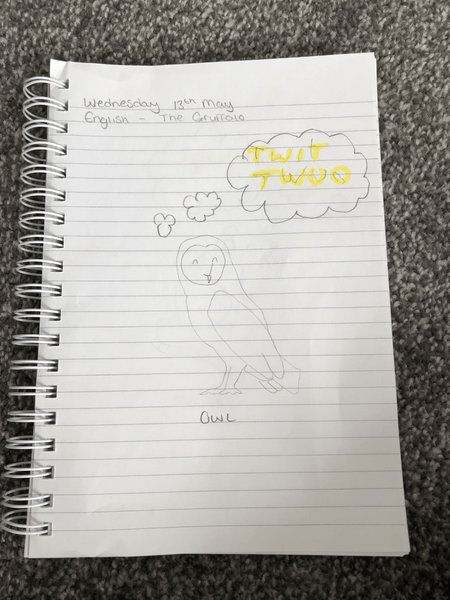 Wednesday 13th May
English - The Gruffalo
TWIT
TWUO
OWL